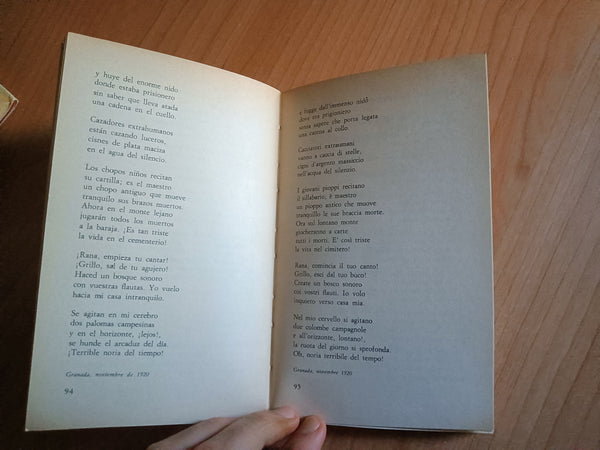 y huye del enorme nido
donde estaba prisionero
sin saber que lleva atada
una cadena en el cuello.
Cazadores extrahumanos
están cazando luceros,
cisnes de plata maciza
en el agua del silencio.
Los chopos niños recitan
su cartilla; es el maestro
un chopo antiguo que mueve
tranquilo sus brazos muertos
Ahora en el monte lejano
jugarán todos los muertos
a la baraja. ¡Es tan triste
la vida en el cementerio!
¡Rana, empieza tu cantar!
¡Grillo, sal de tu agujero!
Haced un bosque sonoro
con vuestras flautas. Yo vuelo
hacia mi casa intranquilo.
Se agitan en mi cerebro
dos palomas campesinas
y en el horizonte, ¡lejos!,
se hunde el arcaduz del día.
¡Terrible noria del tiempo!
Granada, noviembre de 1920
94
e fugge dall'immenso nido
dove era prigioniero
senza sapere che porta legata
una catena al collo.
Cacciatori extraumani
vanno a caccia di stelle,
cigni d'argento massiccio
nell'acqua del silenzio.
I giovani pioppi recitano
il sillabario; è maestro
un pioppo antico che muove
tranquillo le sue braccia morte.
Ora sul lontano monte
giocheranno a carte
tutti i morti. E' così triste
la vita nel cimitero!
Rana, comincia il tuo canto!
Grillo, esci dal tuo buco!
Create un bosco sonoro
coi vostri flauti. Io volo
inquieto verso casa mia.
Nel mio cervello si agitano
due colombe campagnole
e all'orizzonte, lontano!,
la ruota del giorno si sprofonda.
Oh, noria terribile del tempo!
Granada, novembre 1920
95